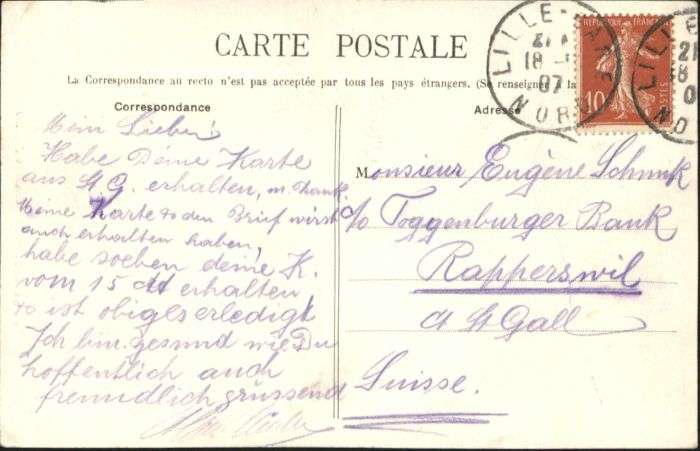 CARTE POSTALE
La Correspondance au recto n'est pas acceptée par tous les pays étrangers. (Se renseigner à la
Correspondance
Mein Lieber
Habe Deine Karte
aus St G. erhalten, m. Dank
Meine Karte &
den Brief wirst
auch erhalten haben,
habe soeben deine K.
vom 15 ct erhalten
& ist obiges erledigt
Ich bin gesund wie Du
hoffentlich auch
freundlich grüssend
Adresse
Monsieur Eugène Schmuk
c/o Toggenburger Bank
Rapperswil
Ct St Gall
Suisse.
LILLE
18
07
NORD
REPUBLIQUE FRANÇAISE
10
POSTES
LILLE
21
18
0
NO